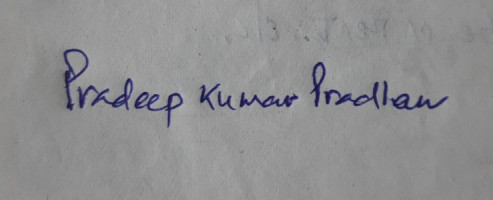 Pradeep Kumar Pradhan